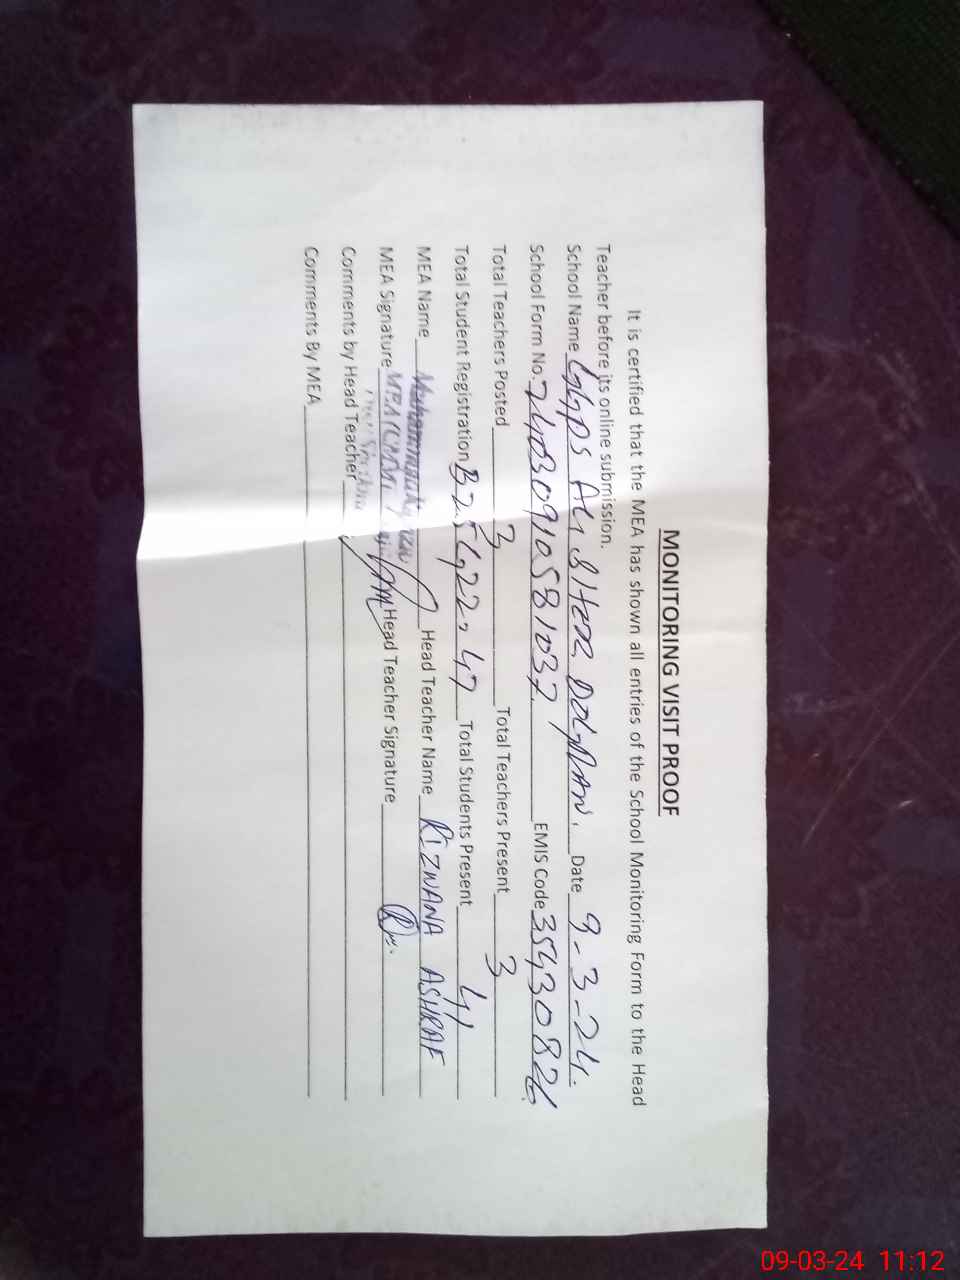 MONITORING VISIT PROOF
It is certified that the MEA has shown all entries of the School Monitoring Form to the Head
Teacher before its online submission.
School Name GGPS Ali SHER DOGRAN. Date 9-3-24.
School Form No. 24030910581037 EMIS Code 35430826
Total Teachers Posted 3 Total Teachers Present 3
Total Student Registration B 25 G 22 = 47 Total Students Present 41
MEA Name Head Teacher Name RIZWANA ASHRAF
MEA Signature MEA Head Teacher Signature
Comments by Head Teacher
Comments By MEA
09-03-24 11:12